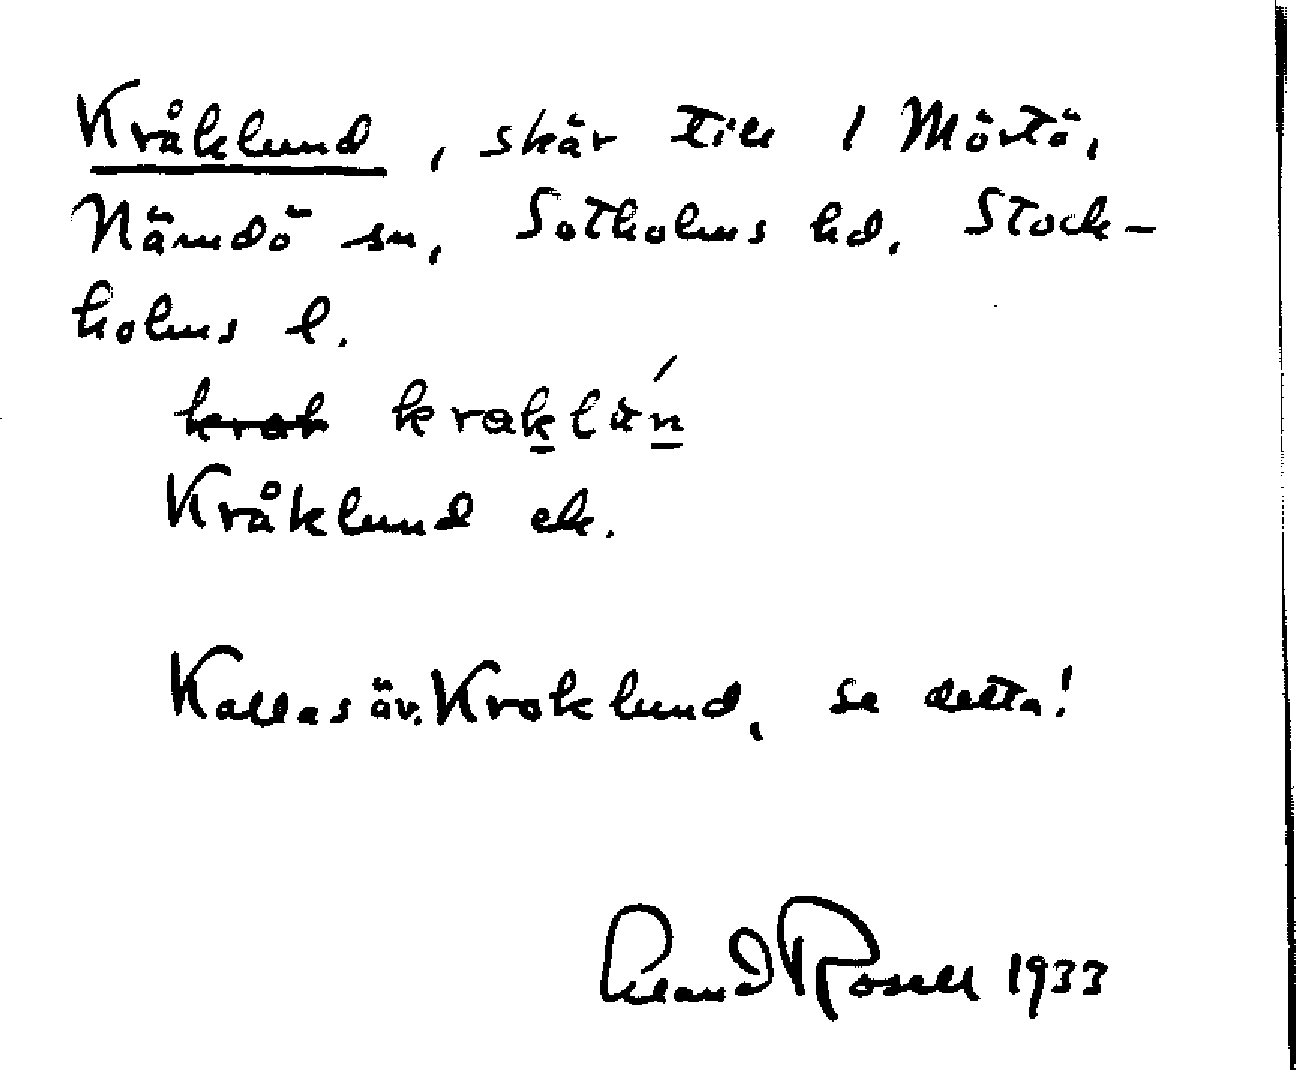 Kråklund, skär till 1 Mörtö,
Nämdö sn, Sotholms hd. Stock-
holms l.
krak kraklún
Kråklund ek.
Kallas äv. Kroklund, se detta!
Rosell 1933